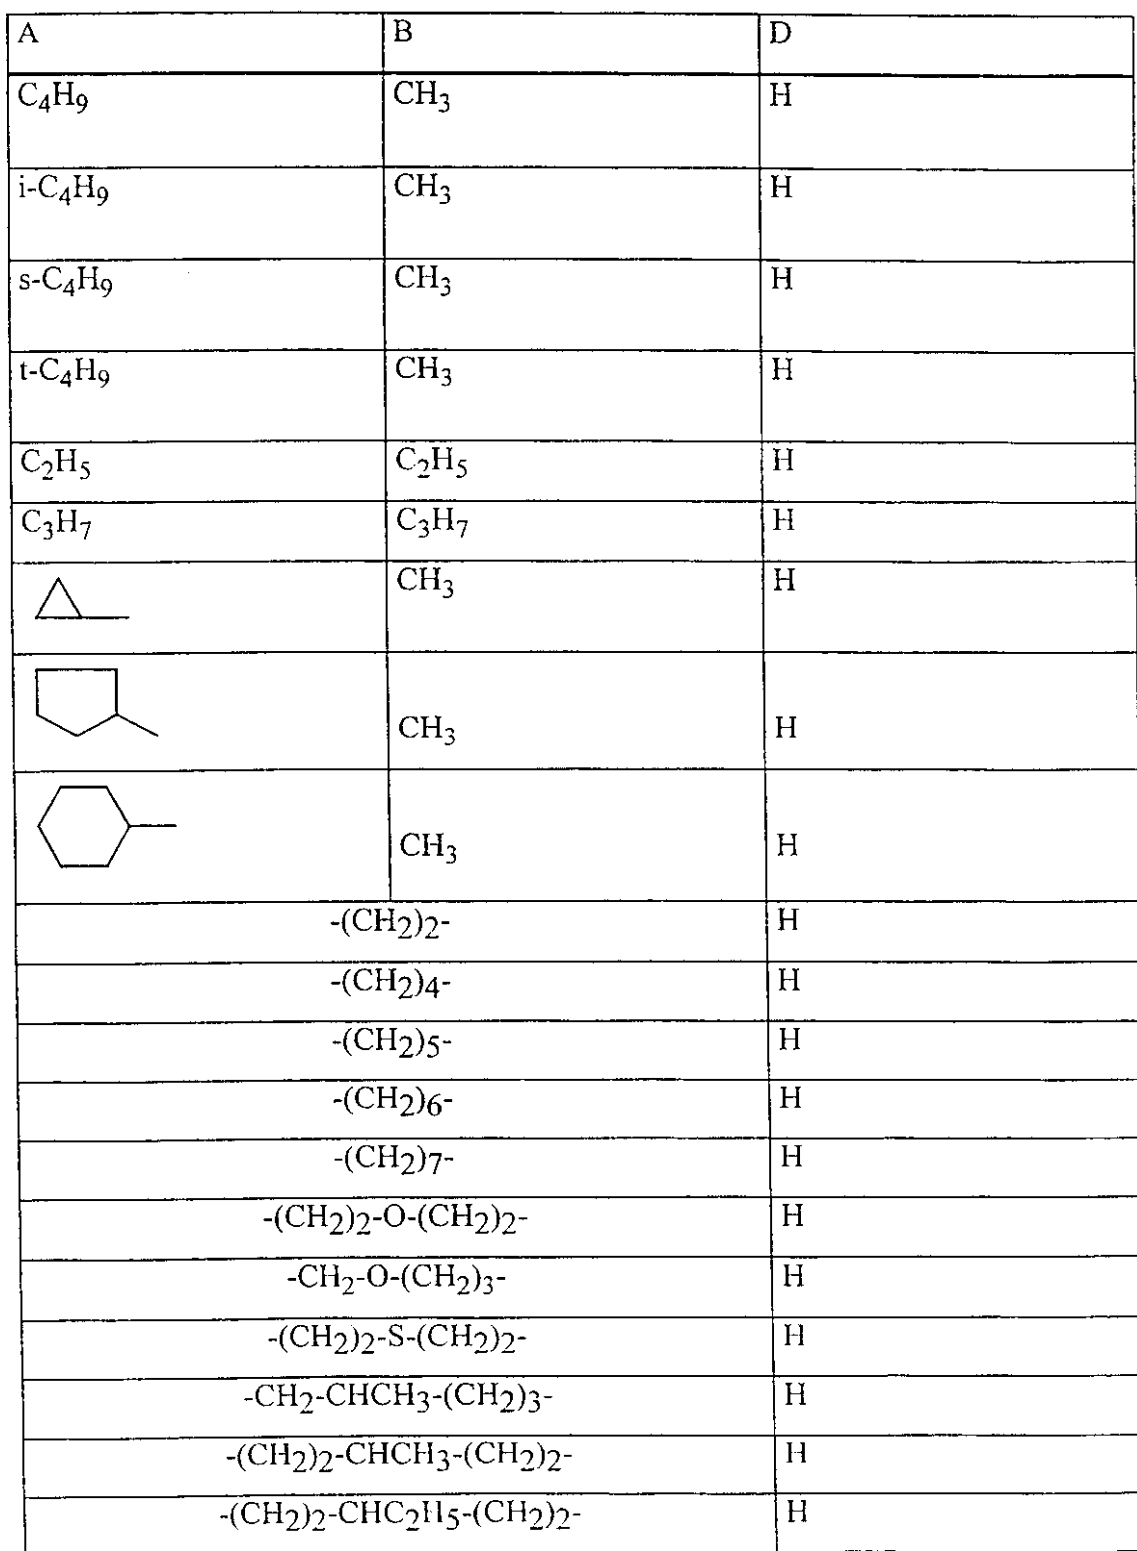 A B D
C4H9 CH3 H
i-C4H9 CH3 H
s-C4H9 CH3 H
t-C4H9 CH3 H
C2H5 C2H5 H
C3H7 C3H7 H
CH3 H
CH3 H
CH3 H
-(CH2)2- H
-(CH2)4- H
-(CH2)5- H
-(CH2)6- H
-(CH2)7- H
-(CH2)2-O-(CH2)2- H
-CH2-O-(CH2)3- H
-(CH2)2-S-(CH2)2- H
-CH2-CHCH3-(CH2)3- H
-(CH2)2-CHCH3-(CH2)2- H
-(CH2)2-CHC2H5-(CH2)2- H